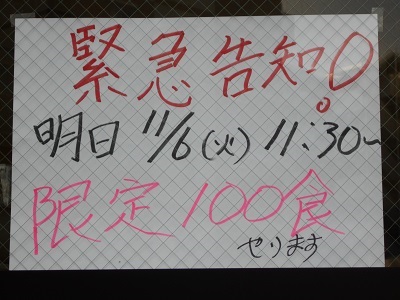 緊急告知!
明日 11/6(火) 11:30~
限定100食
やります